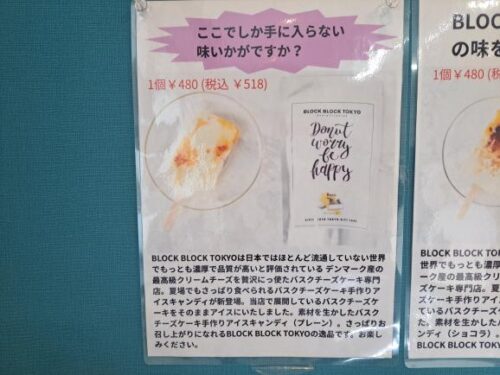 ここでしか手に入らない
味いかがですか?
1個¥480 (税込 ¥518)
BLOCK BLOCK TOKYO
Donut
worry
be
happy
BLOCK BLOCK TOKYOは日本ではほとんど流通していない世界
でもっとも濃厚で品質が高いと評価されている デンマーク産の
最高級クリームチーズを贅沢に使たバスクチーズケーキ専門
店。夏場でもさっぱり食べられるバスクチーズケーキ手作りア
イスキャンディが新登場。当店で展開しているバスクチーズケ
ーキをそのままアイスにいたしました。素材を生かしたバスク
チーズケーキ手作りアイスキャンディ(プレーン)。さっぱりお
召し上がりになれるBLOCK BLOCK TOKYOの逸品です。お楽し
みください。
BLOC
の味を
1個¥480 (
BLOCK BLOCK TO
世界でもっとも濃
ーク産の最高級ク
キ専門店。夏
ズケーキ手作り
スクチーズケーキ
た。素材を生か
ンディ(ショコラ)。
BLOCK BLOCK TO